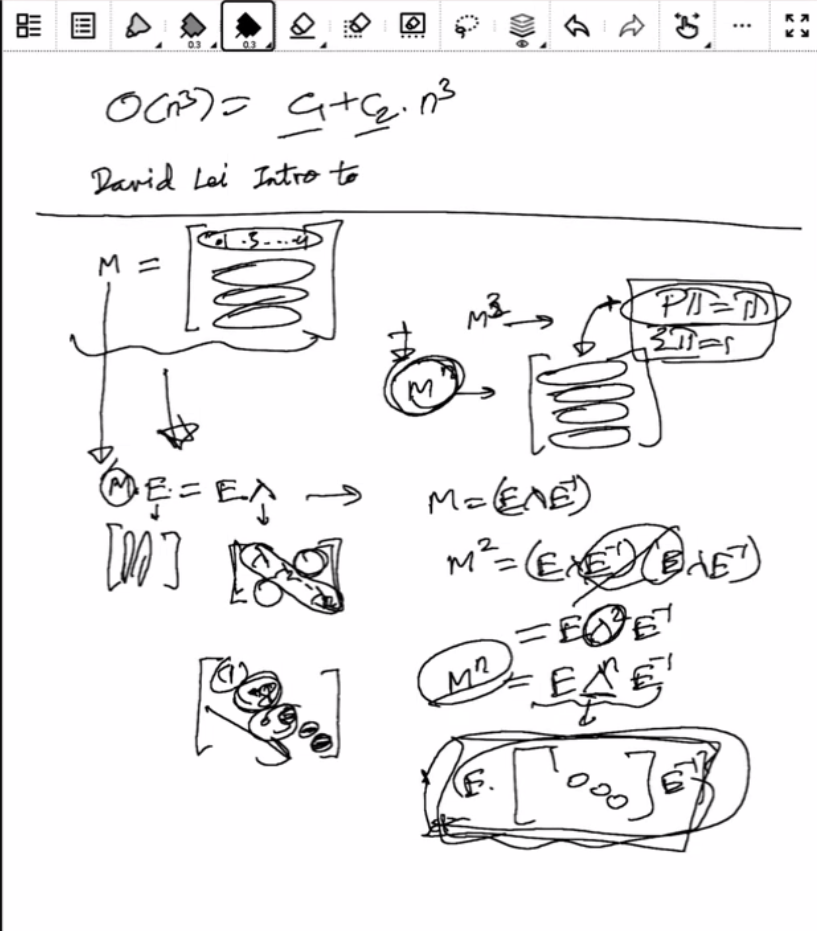 0.3 0.3
O(n³) = C₁ + C₂ · n³
David Lei Intro to
M =
M³ →
Pπ = π
Σπ = 1
Mⁿ →
M E = E Λ → M = (E Λ E⁻¹)
M² = (E Λ E⁻¹)(E Λ E⁻¹)
= E Λ² E⁻¹
Mⁿ = E Λⁿ E⁻¹
E. [ ] E⁻¹